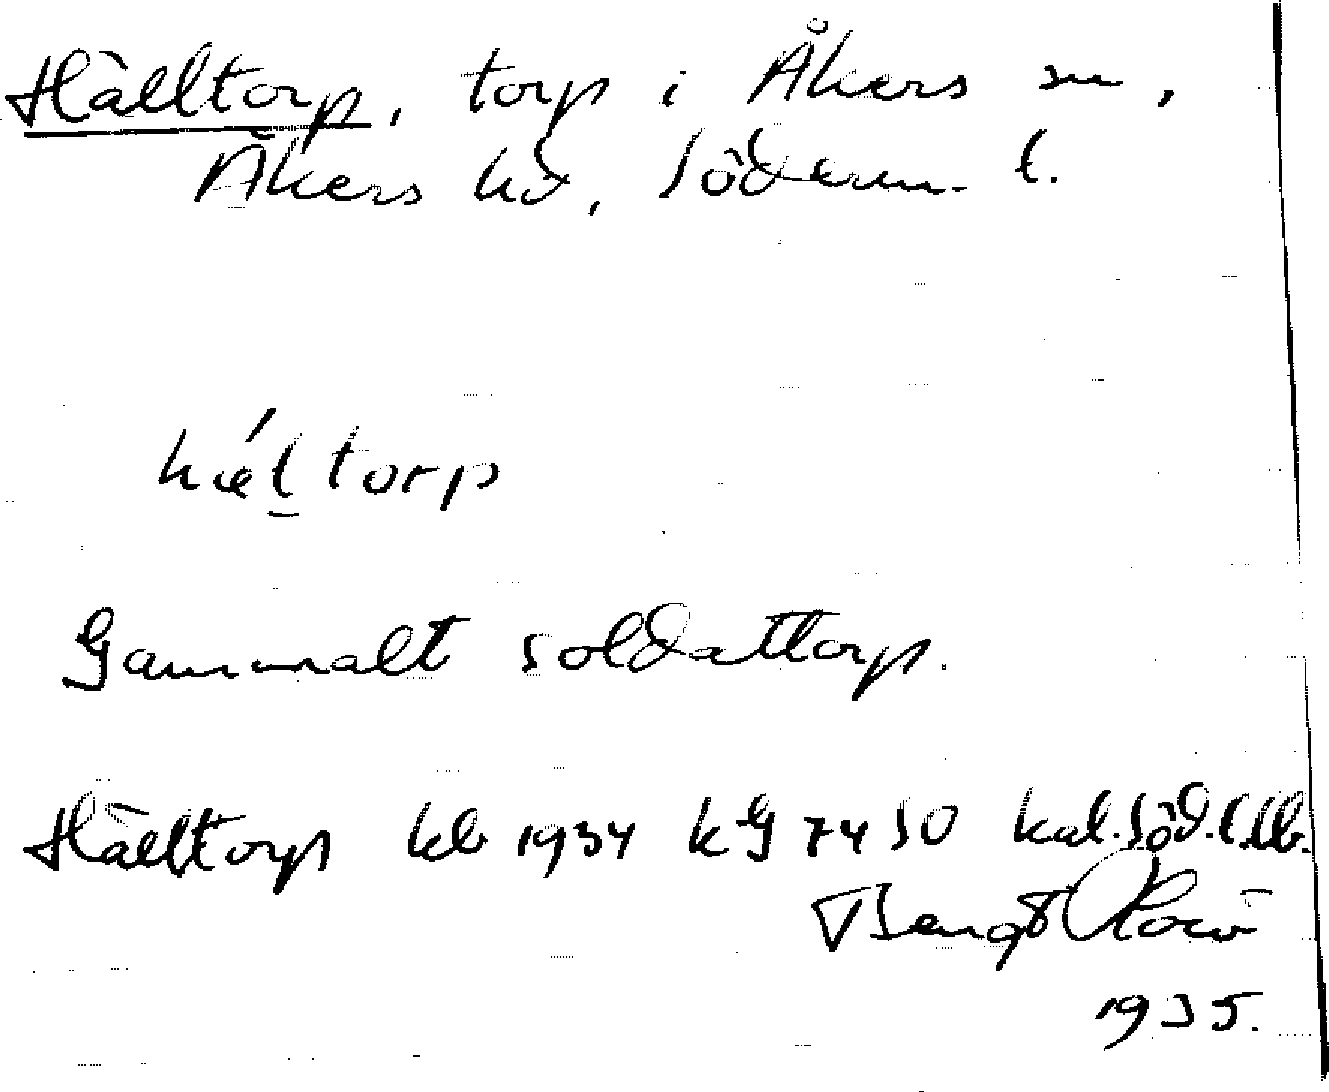 Hälltorp, torp i Åkers sn,
Åkers hd, Söderm. l.
hæ´l torp
Gammalt soldattorp.
Hälltorp kb 1934 k G 74 SO kal. Söd. l. lb.
Bengt
1935.